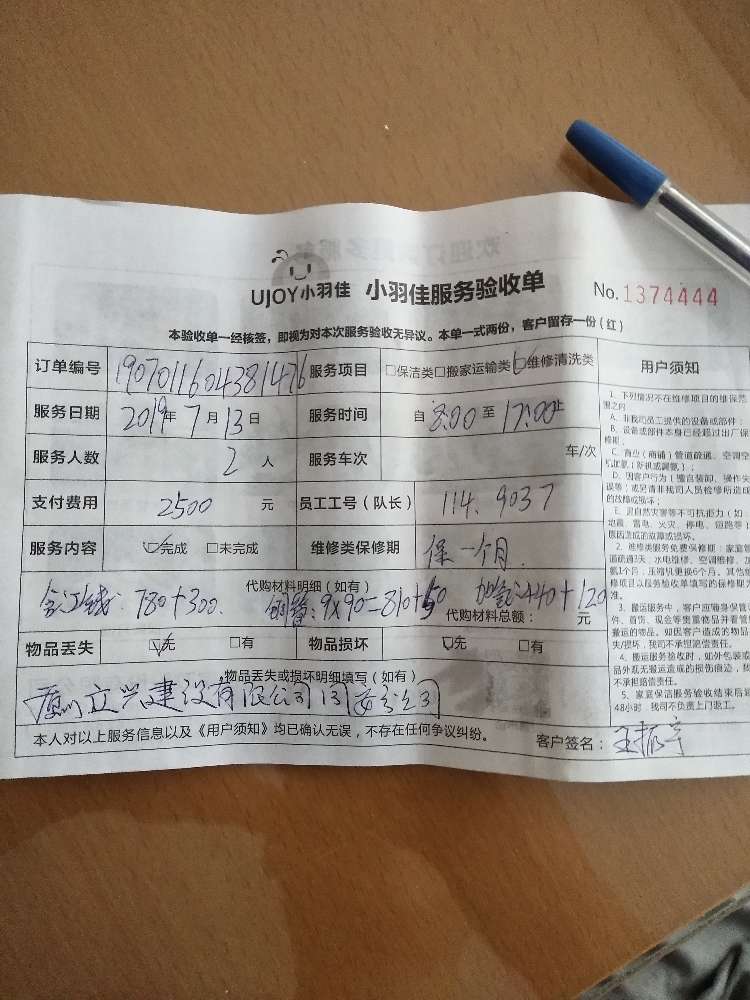 UJOY小羽佳 小羽佳服务验收单 No.1374444
本验收单一经核签，即视为对本次服务验收无异议。本单一式两份，客户留存一份（红）
订单编号 190701160438147 服务项目 □保洁类□搬家运输类☑维修清洗类 用户须知
服务日期 2019年7月13日 服务时间 自 8:00 至 17:00止
服务人数 2 人 服务车次 车/次
支付费用 2500 元 员工工号（队长） 114.9037
服务内容 ☑完成 □未完成 维修类保修期 保一个月
代购材料明细（如有）
780+300. 铜管:9×90=810+50 加氨:440+120
代购材料总额： 元
物品丢失 ☑无 □有 物品损坏 ☑无 □有
物品丢失或损坏明细填写（如有）
厦门立兴建设有限公司同安分公司
本人对以上服务信息以及《用户须知》均已确认无误，不存在任何争议纠纷。 客户签名：王振宇
1、下列情况不在维修项目的维保范
围之内
A、非我司员工提供的设备或部件；
B、设备或部件本身已经超过出厂保
修期；
C、商业（商铺）管道疏通、空调空
D、因客户行为（擅自装卸、操作失
误等）或另请非我司人员检修所造成
的故障或损坏；
E、因自然灾害等不可抗拒力（如
地震、雷电、火灾、停电、短路等）
原因造成的故障或损坏。
2、维修类服务免费保修期：家庭管
道疏通3天、水电维修、空调维修、加
氨1个月；压缩机更换6个月。其他维
修项目以服务验收单填写的保修期为
准。
3、搬运服务中，客户应随身保管
件、首饰、现金等贵重物品并看管
搬运的物品。如因客户造成的物品
失/损坏，我司不承担赔偿责任。
4、搬运服务验收时，如外包装或
品外观无搬运造成的损伤痕迹，我
不承担赔偿责任。
5、家庭保洁服务验收结束后超
48小时，我司不负责上门返工。